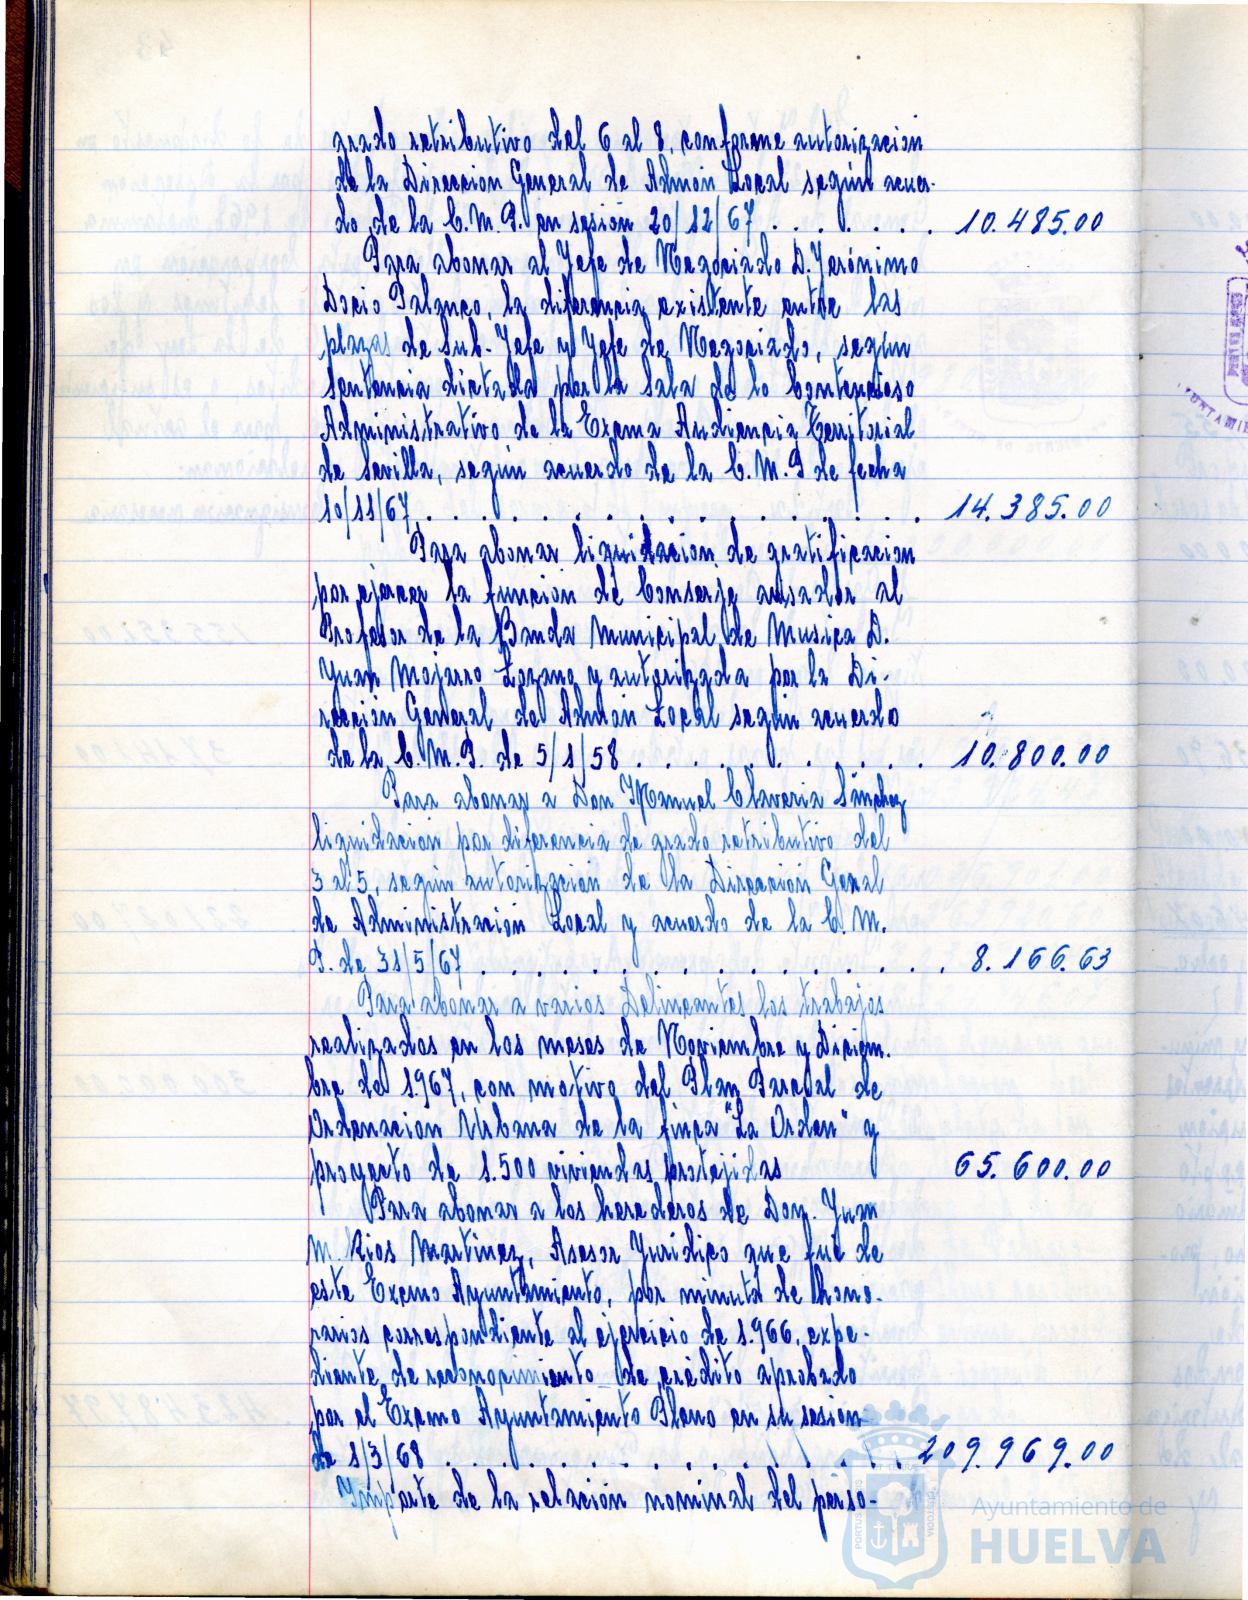 grado retributivo del 6 al 8, conforme autorización
de la Dirección General de Admón Local según acuer-
do de la C.M.P. en sesión 20/12/67 . . . . . . . 10.485.00
Para abonar al Jefe de Negociado D. Jerónimo
Docio Palanco, la diferencia existente entre las
plazas de Sub-Jefe y Jefe de Negociado, según
Sentencia dictada por la Sala de lo Contencioso
Administrativo de la Excma Audiencia Territorial
de Sevilla, según acuerdo de la C.M.P de fecha
10/11/67 . . . . . . . . . . . . . . . . 14.385.00
Para abonar liquidación de gratificación
por ejercer la función de Conserje avisador al
Profesor de la Banda Municipal de Musica D.
Juan Mojarro Lozano y autorizada por la Di-
rección General de Admón Local según acuerdo
de la C.M.P. de 5/1/58 . . . . . . . . . . . 10.800.00
Para abonar a Don Manuel Claveria Sánchez
liquidación por diferencia de grado retributivo del
3 al 5, según autorización de la Dirección Geral
de Administración Local y acuerdo de la C.M.
P. de 31/5/67 . . . . . . . . . . . . . . . 8.166.63
Para abonar a varios Delineantes los trabajos
realizados en los meses de Noviembre y Diciem-
bre de 1.967, con motivo del Plan Parcial de
Ordenación Urbana de la finca "La Orden" y
proyecto de 1.500 viviendas protejidas 65.600.00
Para abonar a los herederos de Don. Juan
M. Rios Martinez, Asesor Juridico que fué de
este Excmo Ayuntamiento, por minuta de hono-
rarios correspondiente al ejercicio de 1.966, expe-
diente de reconocimiento de crédito aprobado
por el Excmo Ayuntamiento Pleno en su sesión
de 1/3/68 . . . . . . . . . . . . . . . . 209.969.00
Importe de la relación nominal del perso-
Ayuntamiento de
HUELVA